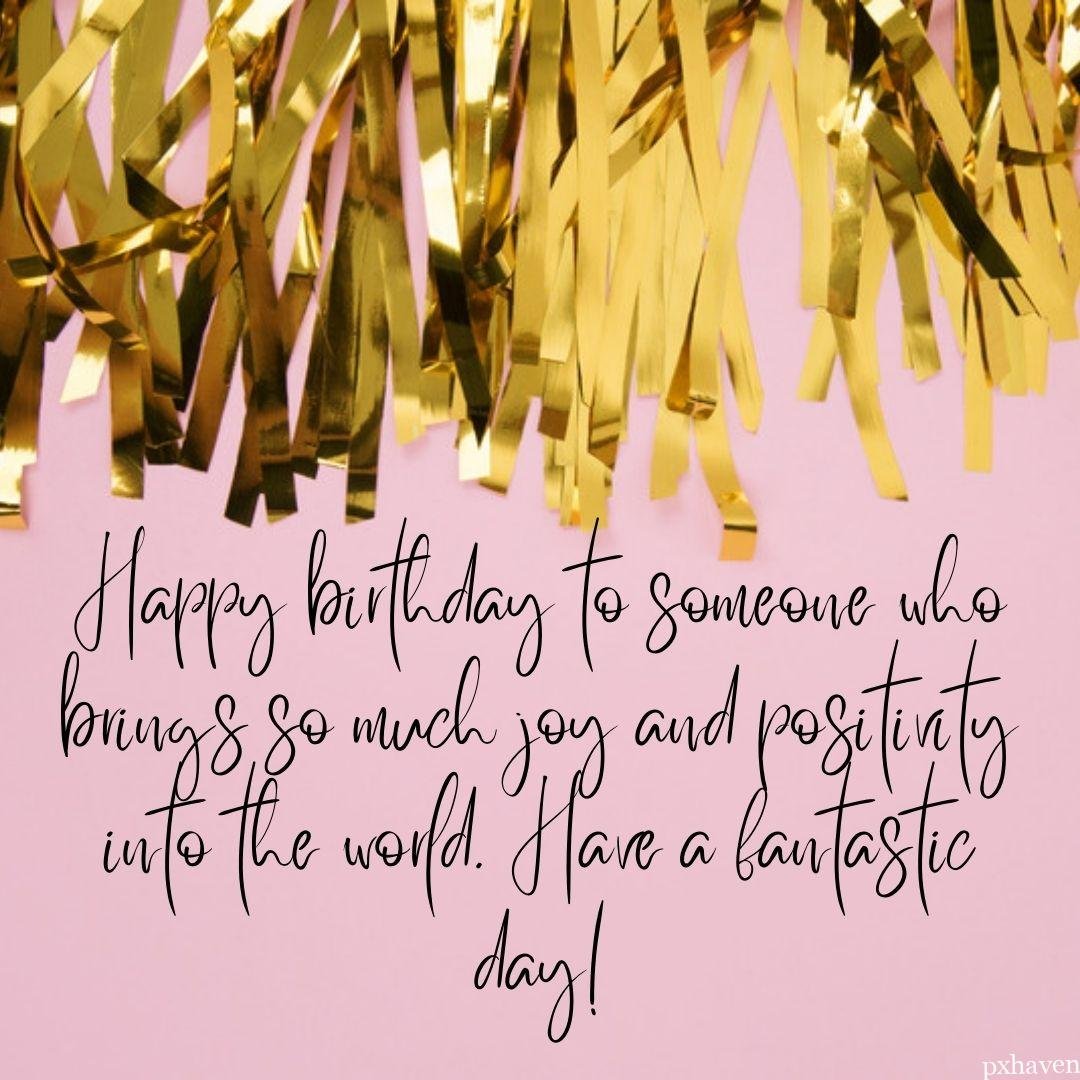 Happy birthday to someone who
brings so much joy and positivity
into the world. Have a fantastic
day!
pxhaven